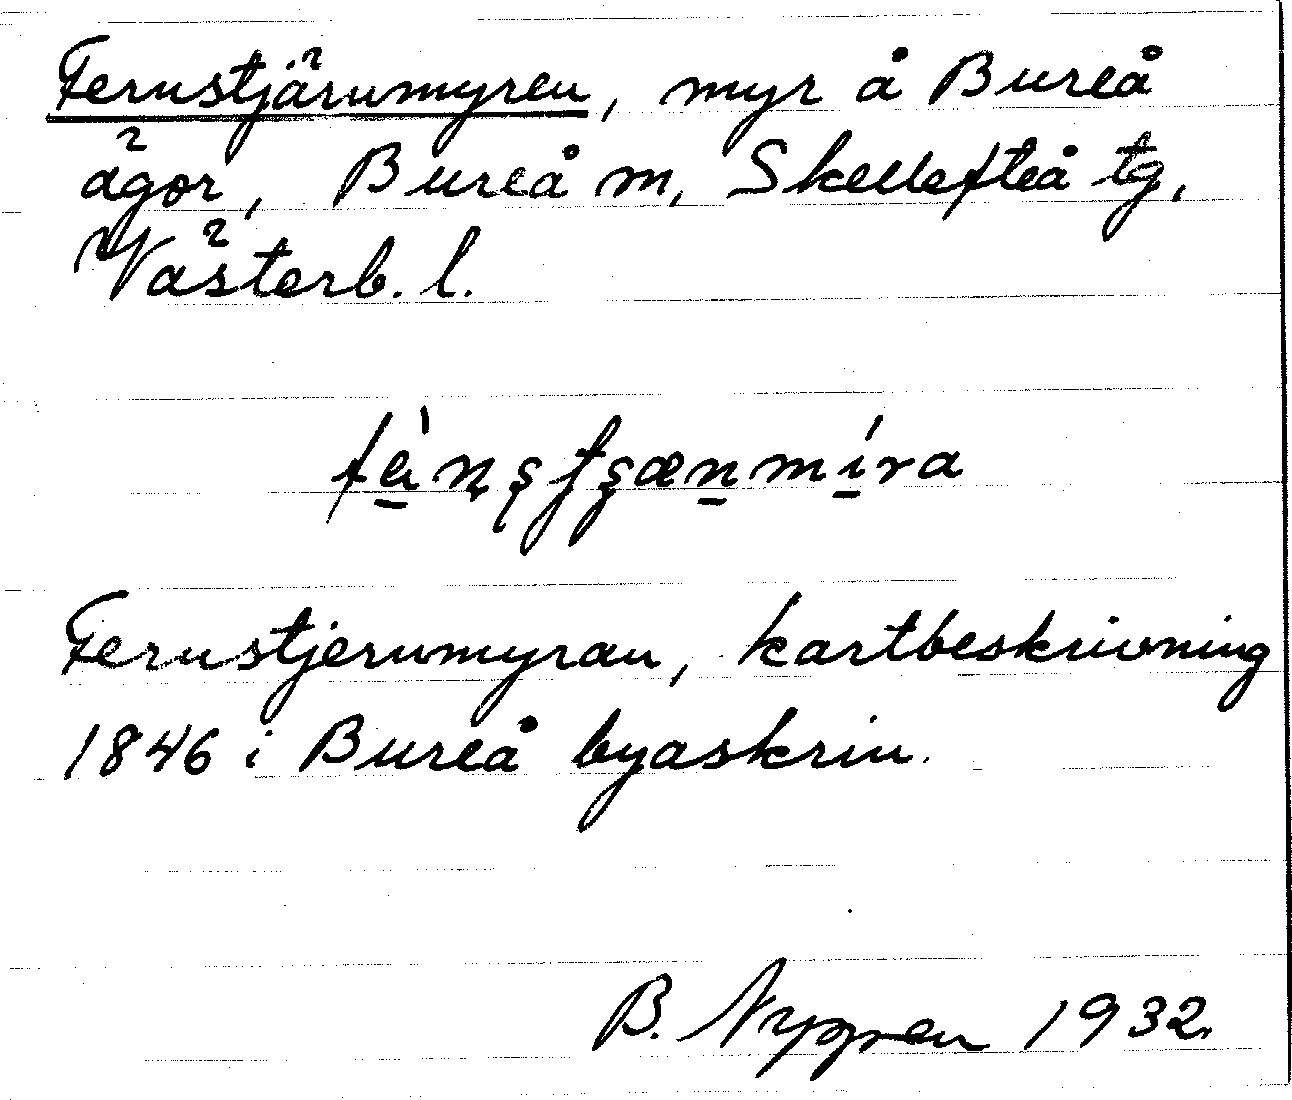 Fernstjärnmyren, myr å Bureå
ägor, Bureå m, Skellefteå tg,
Västerb. l.
fèn̥şţşæn̠míra
Fernstjernmyran, kartbeskrivning
1846 i Bureå byaskrin.
B. Nygren 1932.